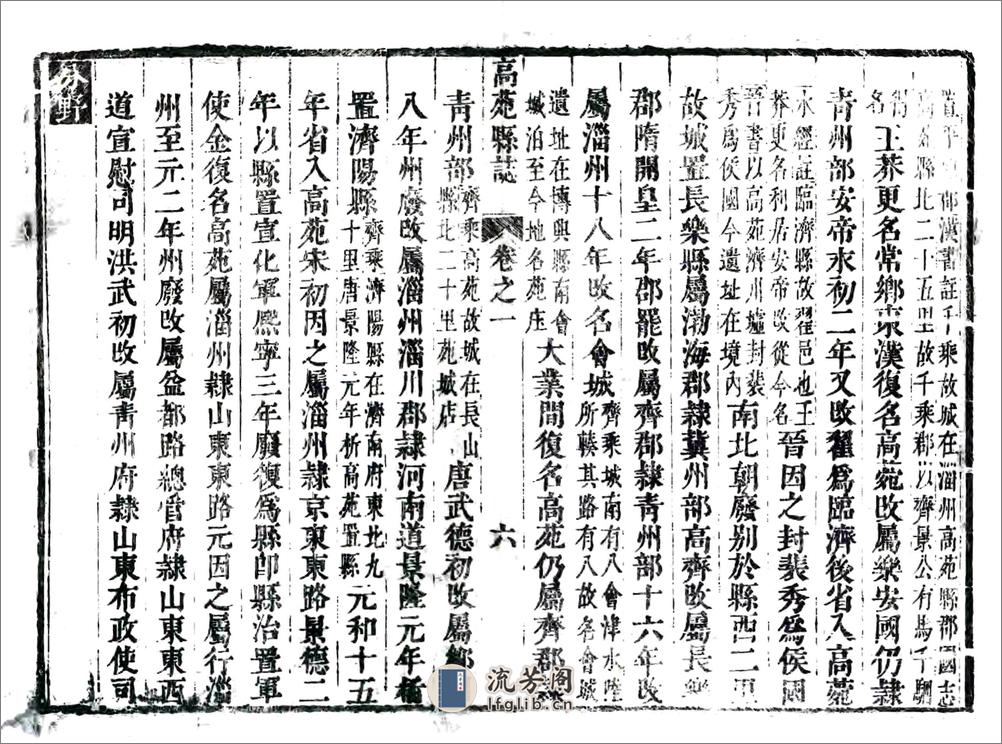 置平 郡漢書註千乘故城在淄州高苑縣郡國志
高苑縣北二十五里故千乘郡以齊景公有馬千駟
得名
王莽更名常鄉東漢復名高苑改屬樂安國仍隸
青州部安帝永初二年又改翟爲臨濟後省入高苑
水經註臨濟縣故翟邑也王
莽更名利居安帝改從今名
晉因之封裴秀爲侯國
晉書以高苑濟川墟封裴
秀爲侯國今遺址在境內
南北朝廢别於縣西二里
故城置長樂縣屬渤海郡隸冀州部高齊改屬長樂
郡隋開皇二年郡罷改屬齊郡隸青州部十六年改
屬淄州十八年改名會城
齊乘城南有八會津水陸
所輳其路有八故名會城
遺址在博興縣南會
城泊至今地名苑庄
大業間復名高苑仍屬齊郡
高苑縣誌
卷之一
六
青州部
齊乘高苑故城在長山
縣北二十里苑城店
唐武德初改屬鄒
八年州廢改屬淄州淄川郡隸河南道景隆元年析
置濟陽縣
齊乘濟陽縣在濟南府東北九
十里唐景隆元年析高苑置縣
元和十五
年省入高苑宋初因之屬淄州隸京東東路景德二
年以縣置宣化軍熙寧三年廢復爲縣卽縣治置軍
使金復名高苑屬淄州隸山東東路元因之屬行淄
州至元二年州廢改屬益都路總管府隸山東東西
道宣慰司明洪武初改屬青州府隸山東布政使司
分野
流芳阁
lfglib.cn